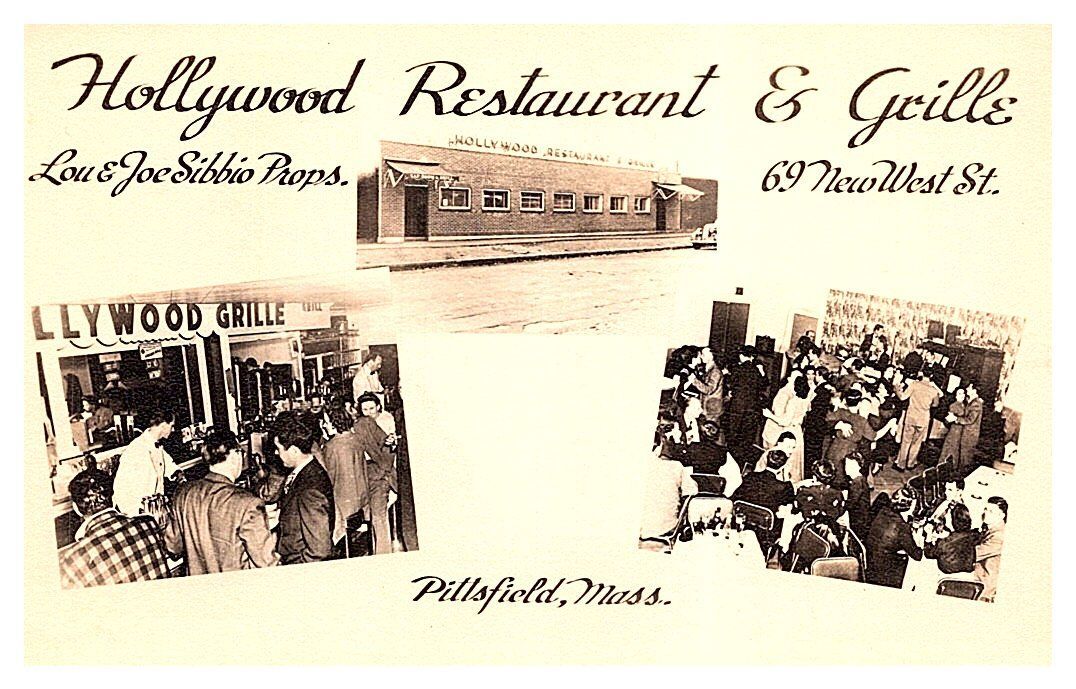 Hollywood Restaurant & Grille
Lou & Joe Sibbio Props.
69 New West St.
HOLLYWOOD RESTAURANT & GRILLE
LLYWOOD GRILLE
Pittsfield, Mass.